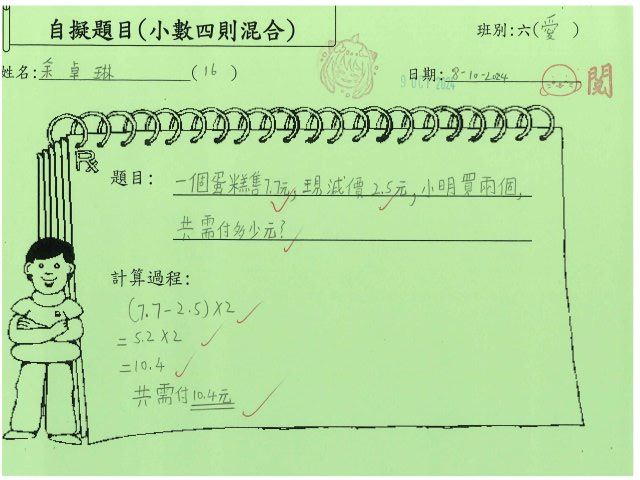 自擬題目(小數四則混合)
班別:六(愛)
姓名:余卓琳(16)
日期:8-10-2024
9 OCT 2024
閱
題目:一個蛋糕售7.7元,現減價2.5元,小明買兩個,
共需付多少元?
計算過程:
(7.7-2.5)×2
=5.2×2
=10.4
共需付10.4元